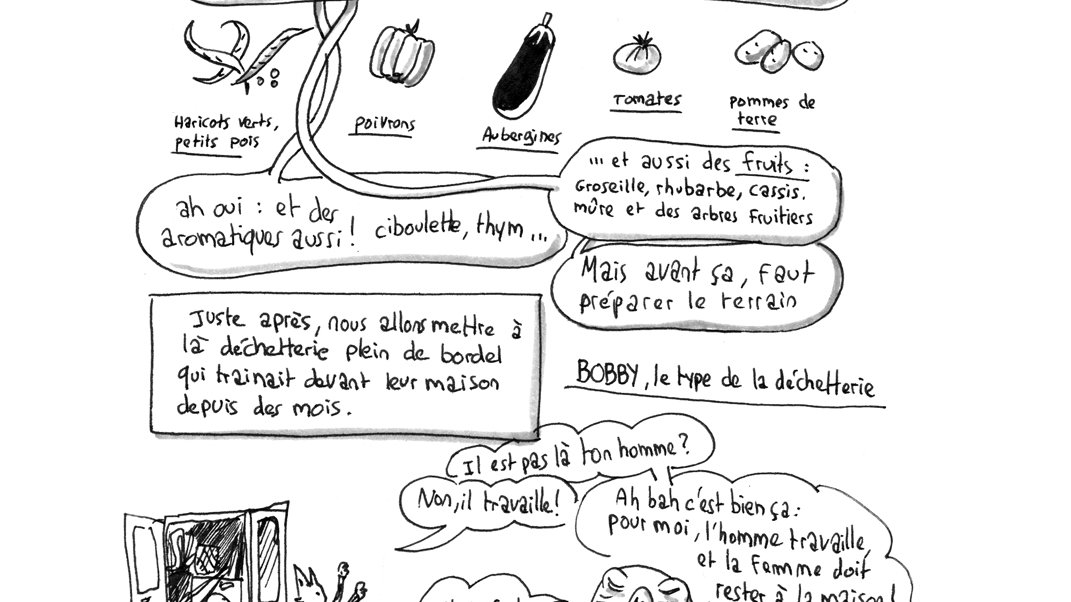 Haricots verts,
petits pois
poivrons
Aubergines
Tomates
pommes de
terre
... et aussi des fruits :
Groseille, rhubarbe, cassis.
mûre et des arbres fruitiers
ah oui : et des
aromatiques aussi !
ciboulette, thym ...
Mais avant ça, faut
préparer le terrain
Juste après, nous allons mettre à
là déchetterie plein de bordel
qui trainait devant leur maison
depuis des mois.
BOBBY, le type de la déchetterie
Il est pas là ton homme ?
Non, il travaille !
Ah bah c'est bien ça :
pour moi, l'homme travaille,
et la femme doit
rester à la maison !